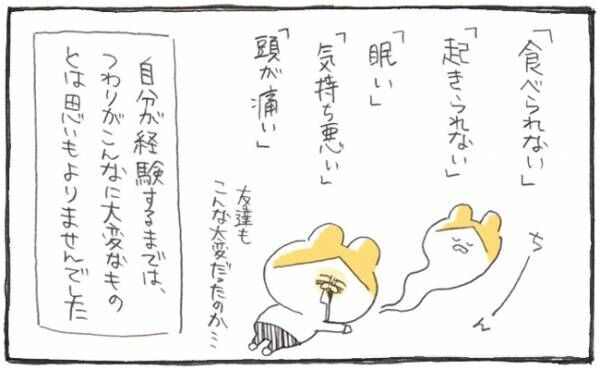 「食べられない」
「起きられない」
「眠い」
「気持ち悪い」
「頭が痛い」
ちーん
友達も
こんな大変だったのか…
自分が経験するまでは、
つわりがこんなに大変なもの
とは思いもよりませんでした